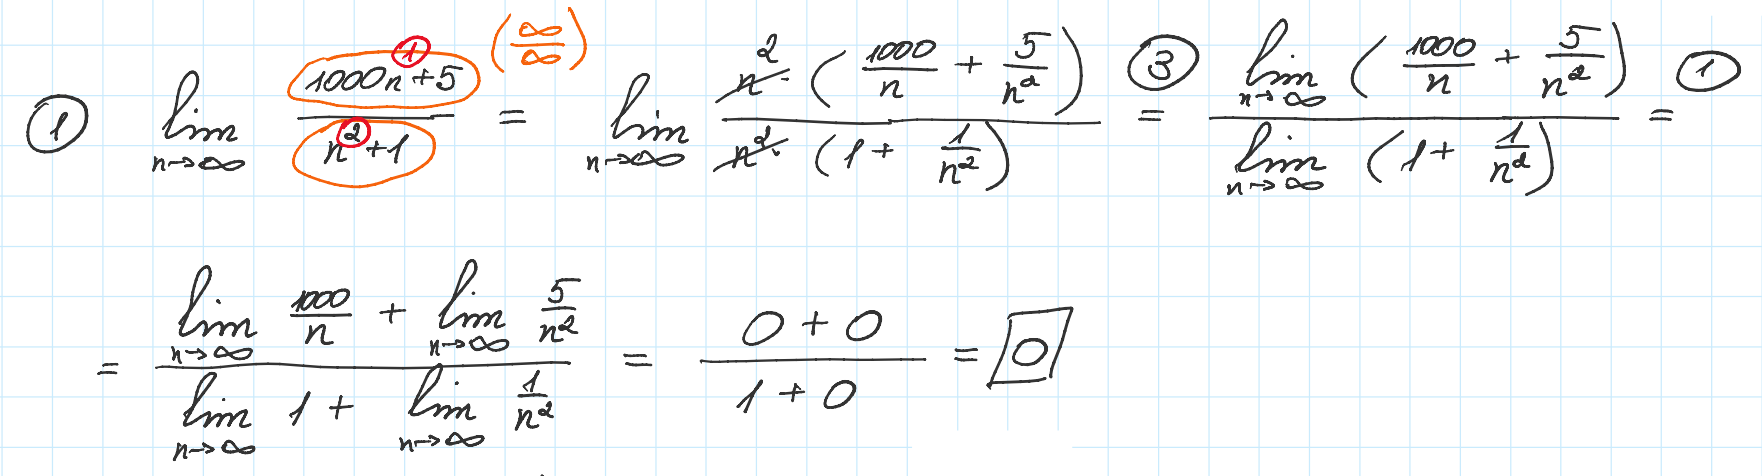 ① lim n→∞ (1000n+5)/(n²+1) (∞/∞) = lim n→∞ n²(1000/n + 5/n²)/n²(1 + 1/n²) ③= lim n→∞ (1000/n + 5/n²)/lim n→∞ (1 + 1/n²) =①
= (lim n→∞ 1000/n + lim n→∞ 5/n²)/(lim n→∞ 1 + lim n→∞ 1/n²) = (0+0)/(1+0) = 0